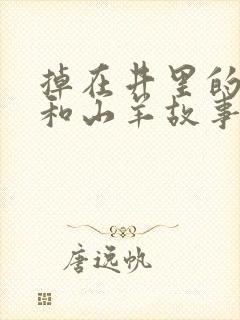 掉在井里的
和山羊故事
唐远帆